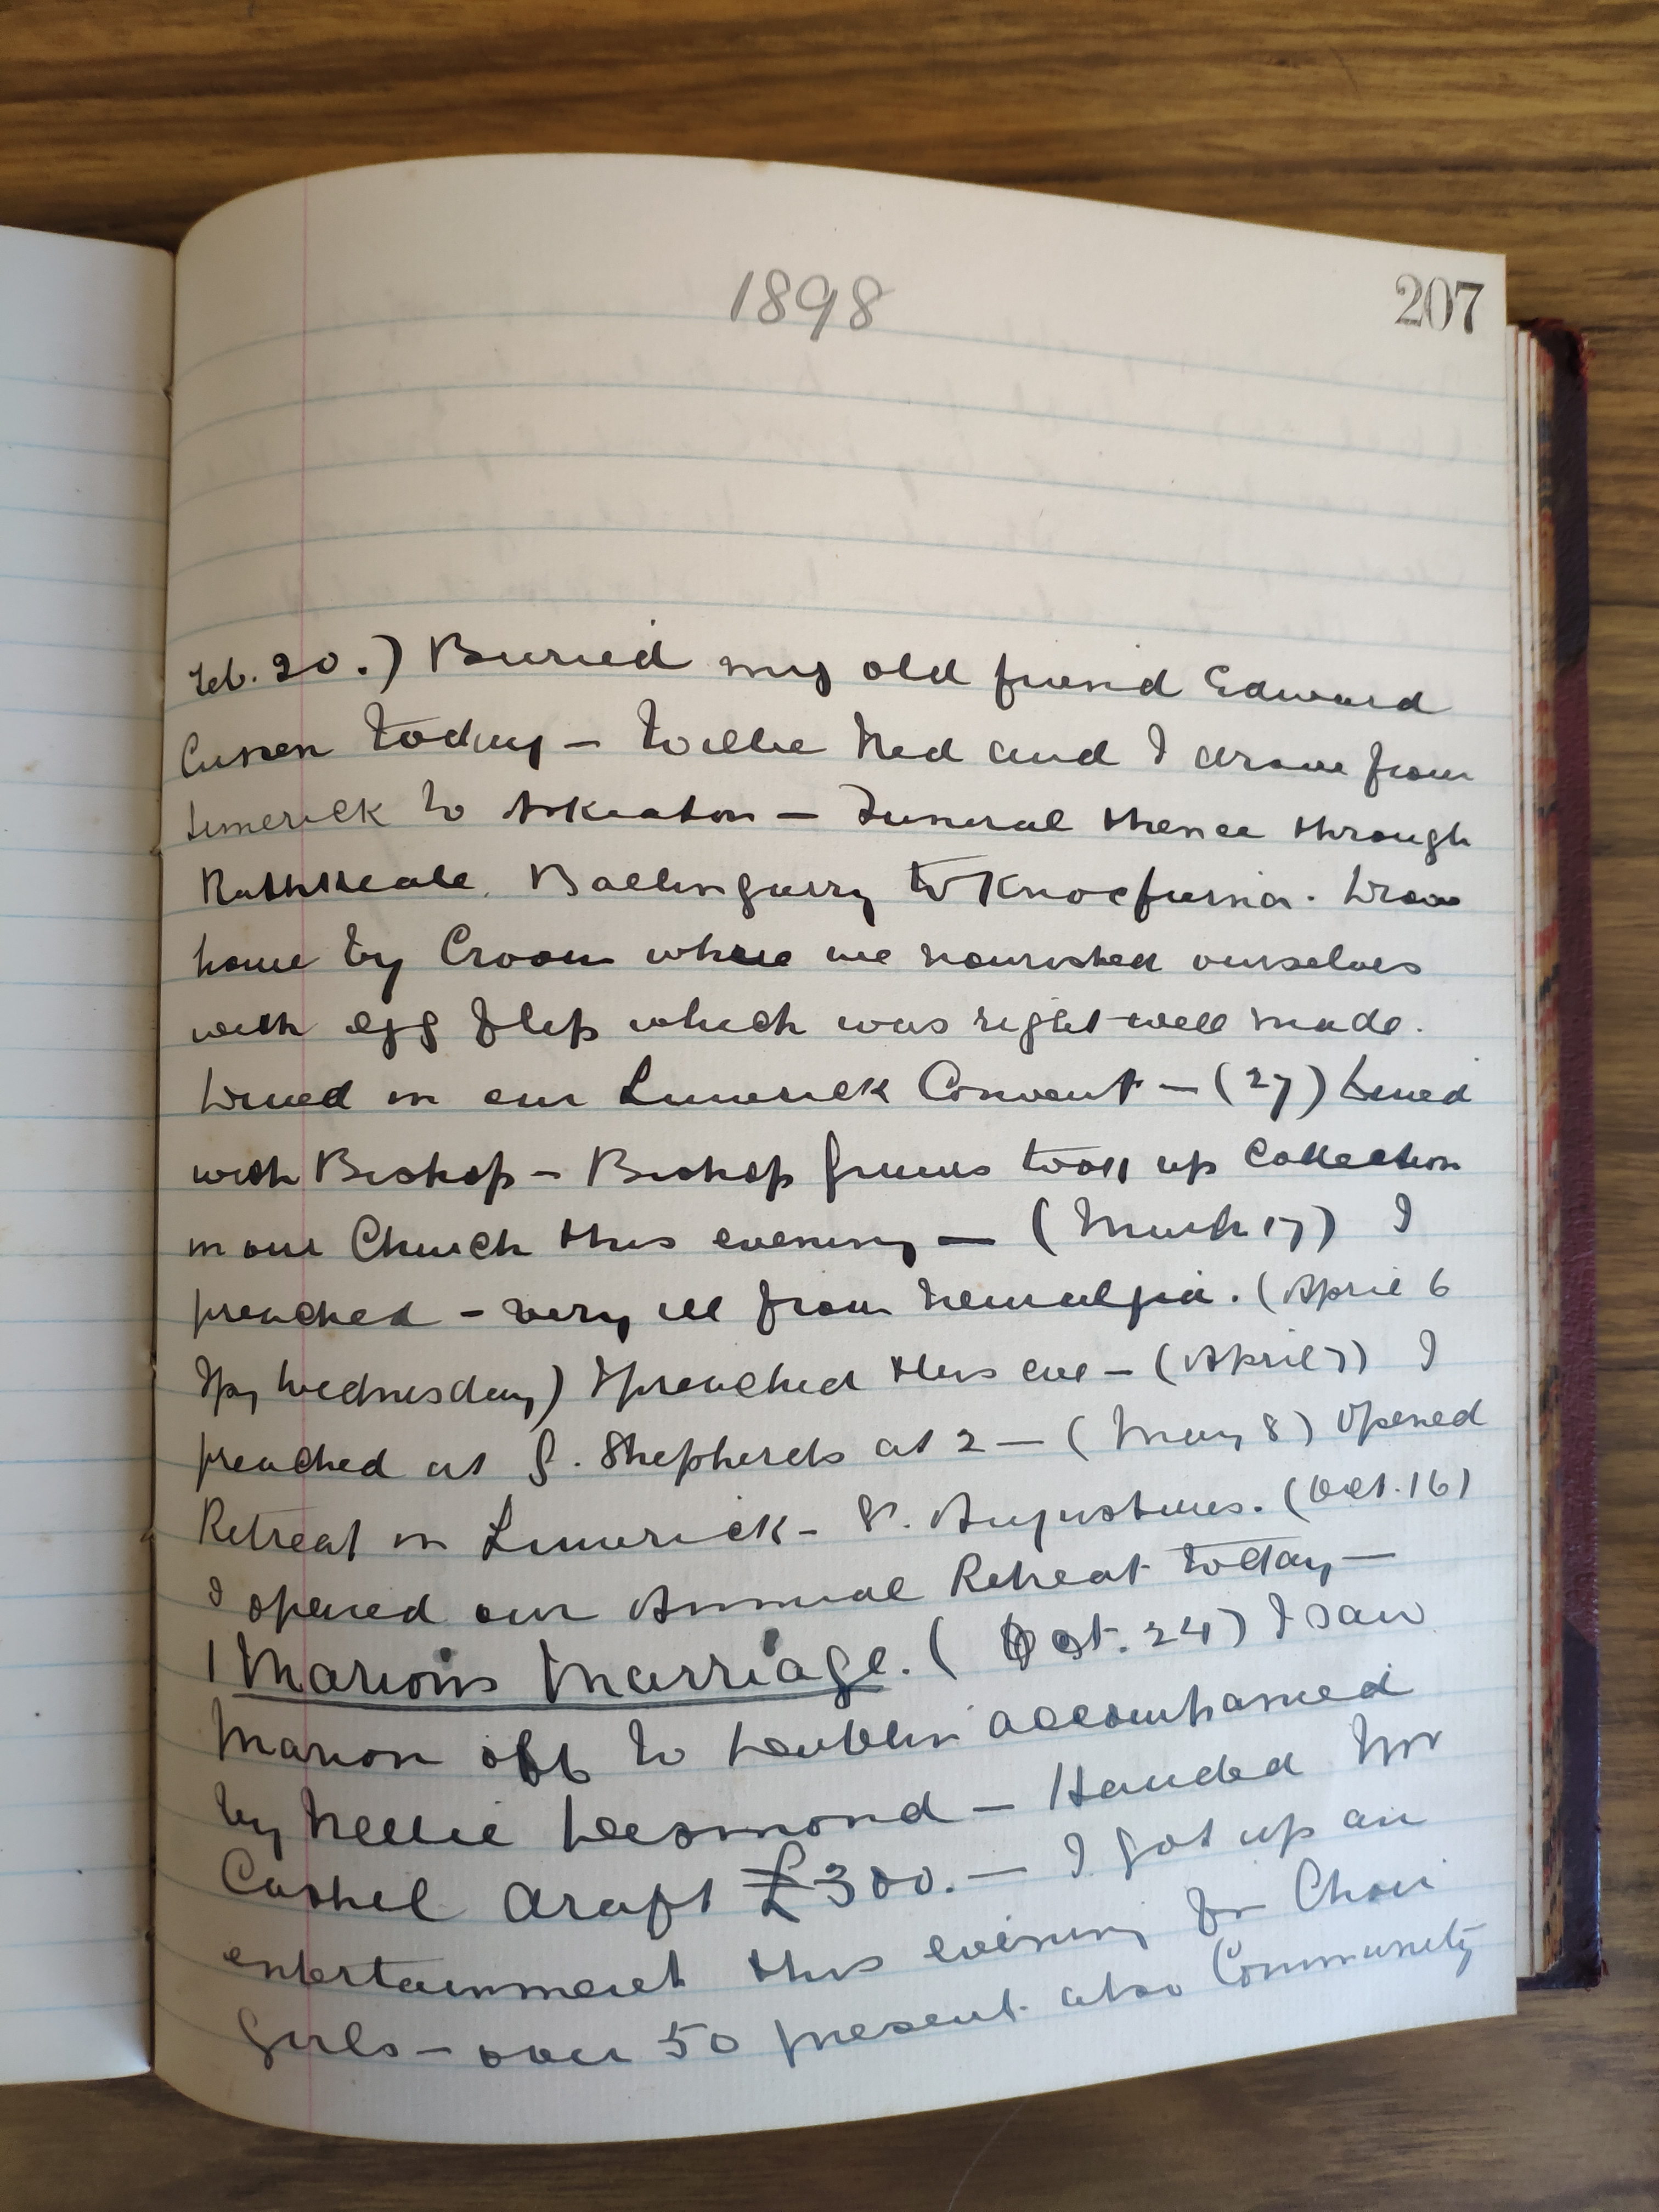 1898
207
Feb. 20.) Buried my old friend Edward
Cussen today - Willie Ned and I drove from
Limerick to Askeaton - Funeral thence through
Rathkeale, Ballingarry to Knocfierna. Drove
home by Croom where we nourished ourselves
with egg flip which was right well made.
Dined in our Limerick Convent - (27) Dined
with Bishop - Bishop took up Collection
in our Church this evening - (March 17) I
preached - very ill from Neuralgia. (April 6
Spy Wednesday) I preached this eve - (April 7) I
preached at G. Shepherds at 2 - (May 8) Opened
Retreat in Limerick - St. Augustines. (Oct. 16)
I opened our Annual Retreat today -
| Marion's Marriage. ( Oct. 24) I saw
Marion off to Dublin accompanied
by Nellie Desmond - Handed Mr
Cashel draft £300. - I got up an
entertainment this evening for Choir
Girls - over 50 present also Community